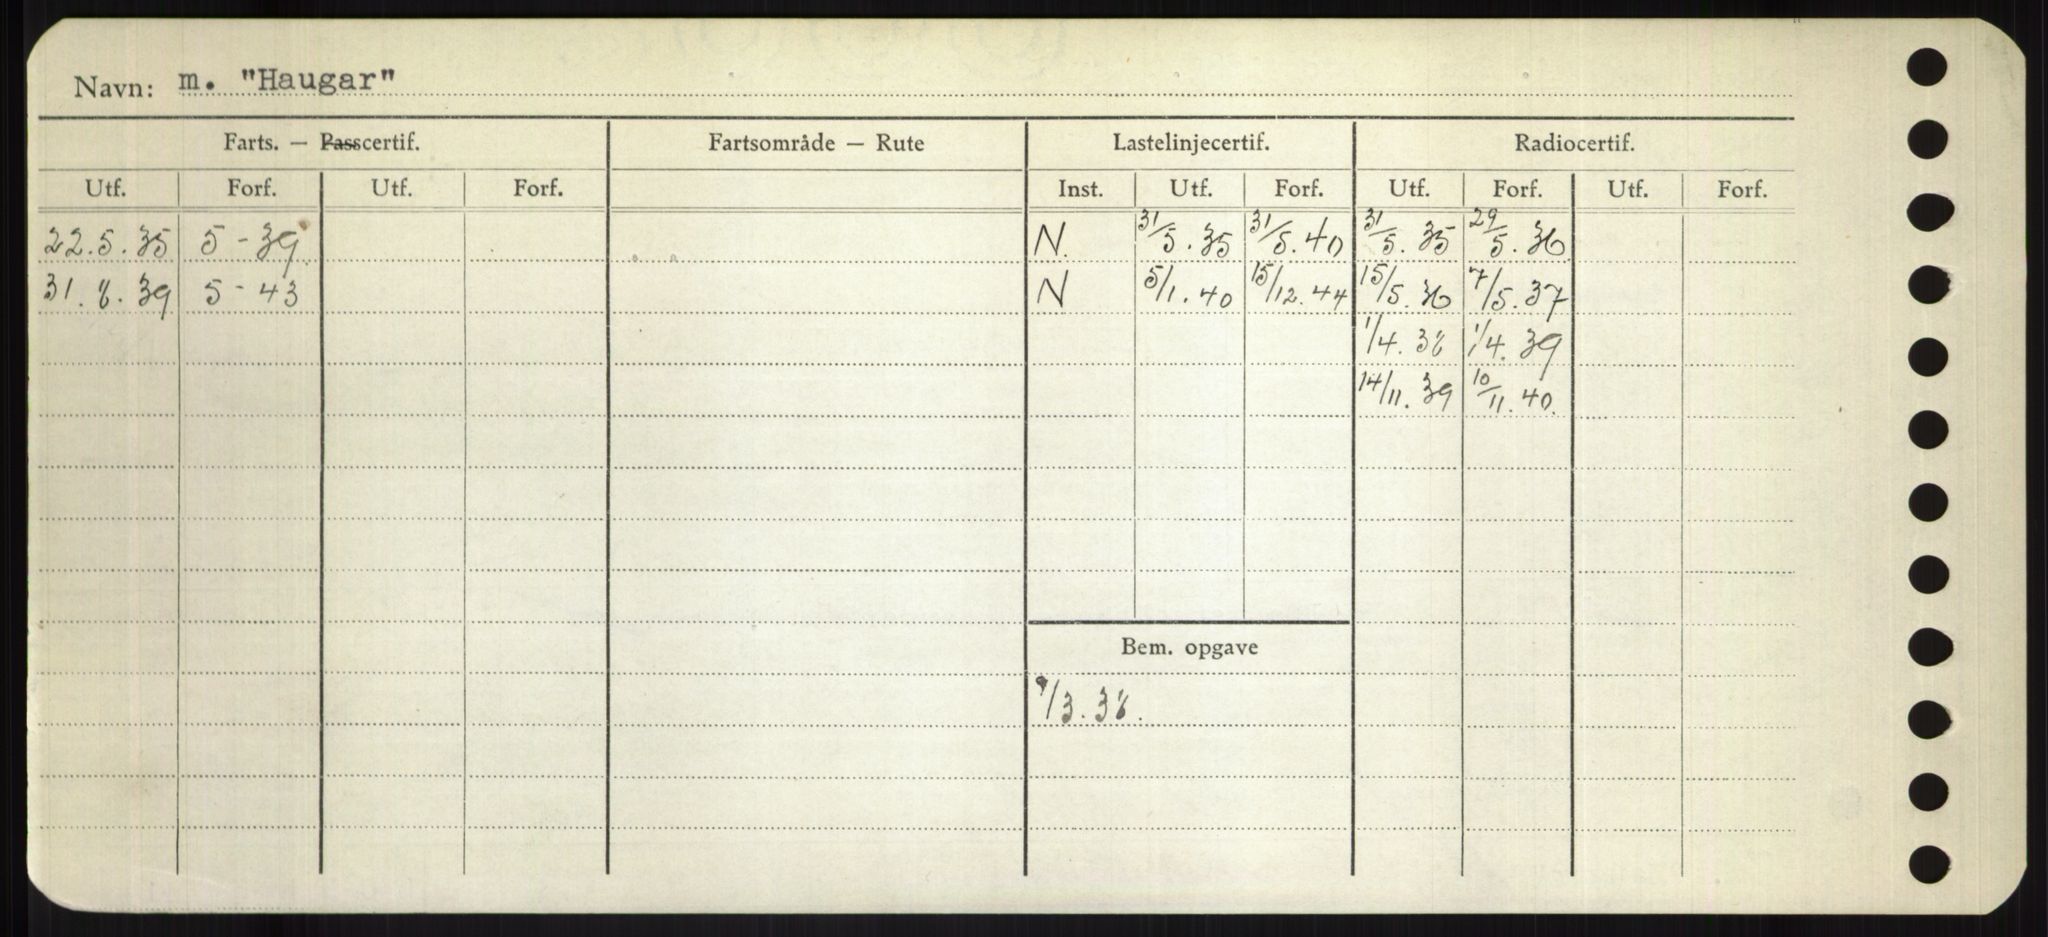 Navn: m. "Haugar"
Farts. — Passcertif. Fartsområde — Rute Lastelinjecertif. Radiocertif.
Utf. Forf. Utf. Forf. Inst. Utf. Forf. Utf. Forf. Utf. Forf.
22.5.35 5-39 N. 31/5.35 31/5.40 31/5.35 29/5.36
31.8.39 5-43 N 5/1.40 15/12.44 15/5.36 7/5.37
1/4.38 1/4.39
14/11.39 10/11.40
Bem. opgave
/3.38.